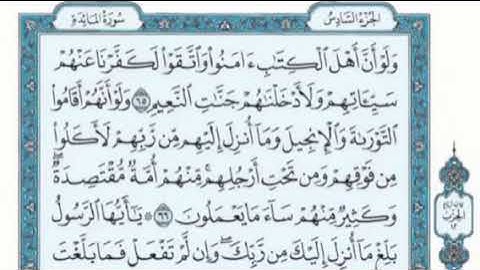 سُورَةُ المَائِدَةِ
الجُزْءُ السَّادِسُ
وَلَوْ أَنَّ أَهْلَ ٱلْكِتَٰبِ ءَامَنُوا۟ وَٱتَّقَوْا۟ لَكَفَّرْنَا عَنْهُمْ
سَيِّـَٔاتِهِمْ وَلَأَدْخَلْنَٰهُمْ جَنَّٰتِ ٱلنَّعِيمِ ٦٥ وَلَوْ أَنَّهُمْ أَقَامُوا۟
ٱلتَّوْرَىٰةَ وَٱلْإِنجِيلَ وَمَآ أُنزِلَ إِلَيْهِم مِّن رَّبِّهِمْ لَأَكَلُوا۟
مِن فَوْقِهِمْ وَمِن تَحْتِ أَرْجُلِهِم ۚ مِّنْهُمْ أُمَّةٌ مُّقْتَصِدَةٌ ۖ
وَكَثِيرٌ مِّنْهُمْ سَآءَ مَا يَعْمَلُونَ ٦٦ ۞ يَٰٓأَيُّهَا ٱلرَّسُولُ
بَلِّغْ مَآ أُنزِلَ إِلَيْكَ مِن رَّبِّكَ ۖ وَإِن لَّمْ تَفْعَلْ فَمَا بَلَّغْتَ
الحِزْب